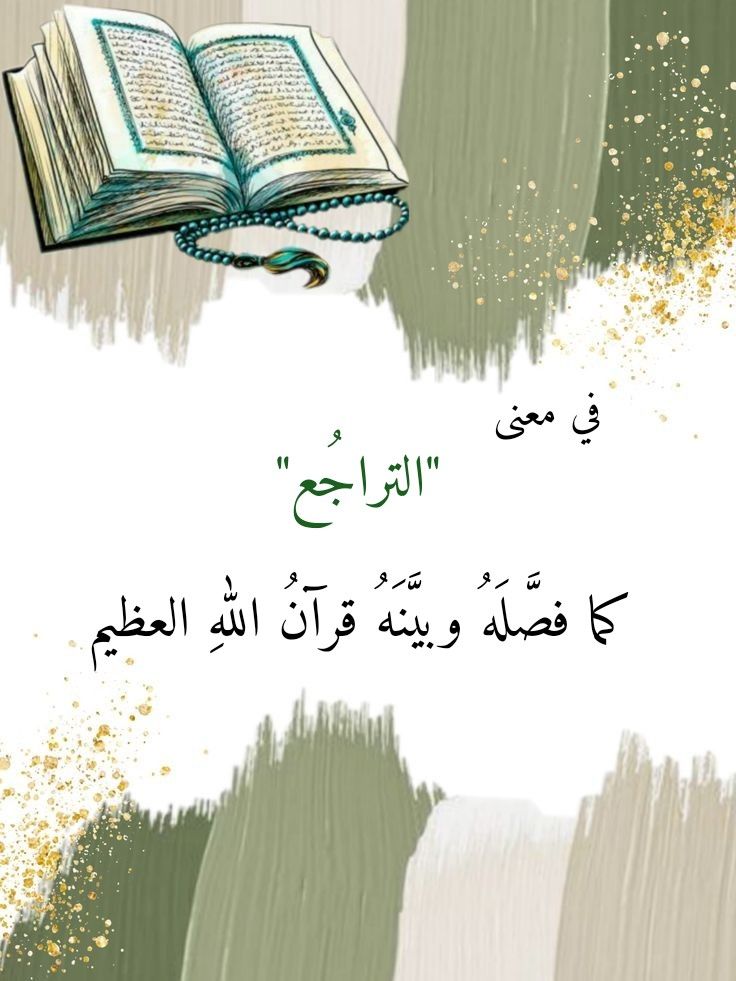 في معنى
"التراجُع"
كما فصَّلَهُ وبيَّنَهُ قرآنُ اللهِ العظيم